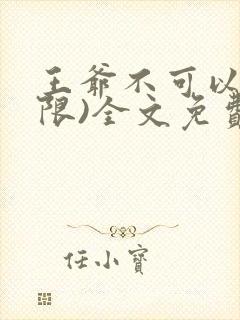 王爷不可以
限)全文免費
任小寶